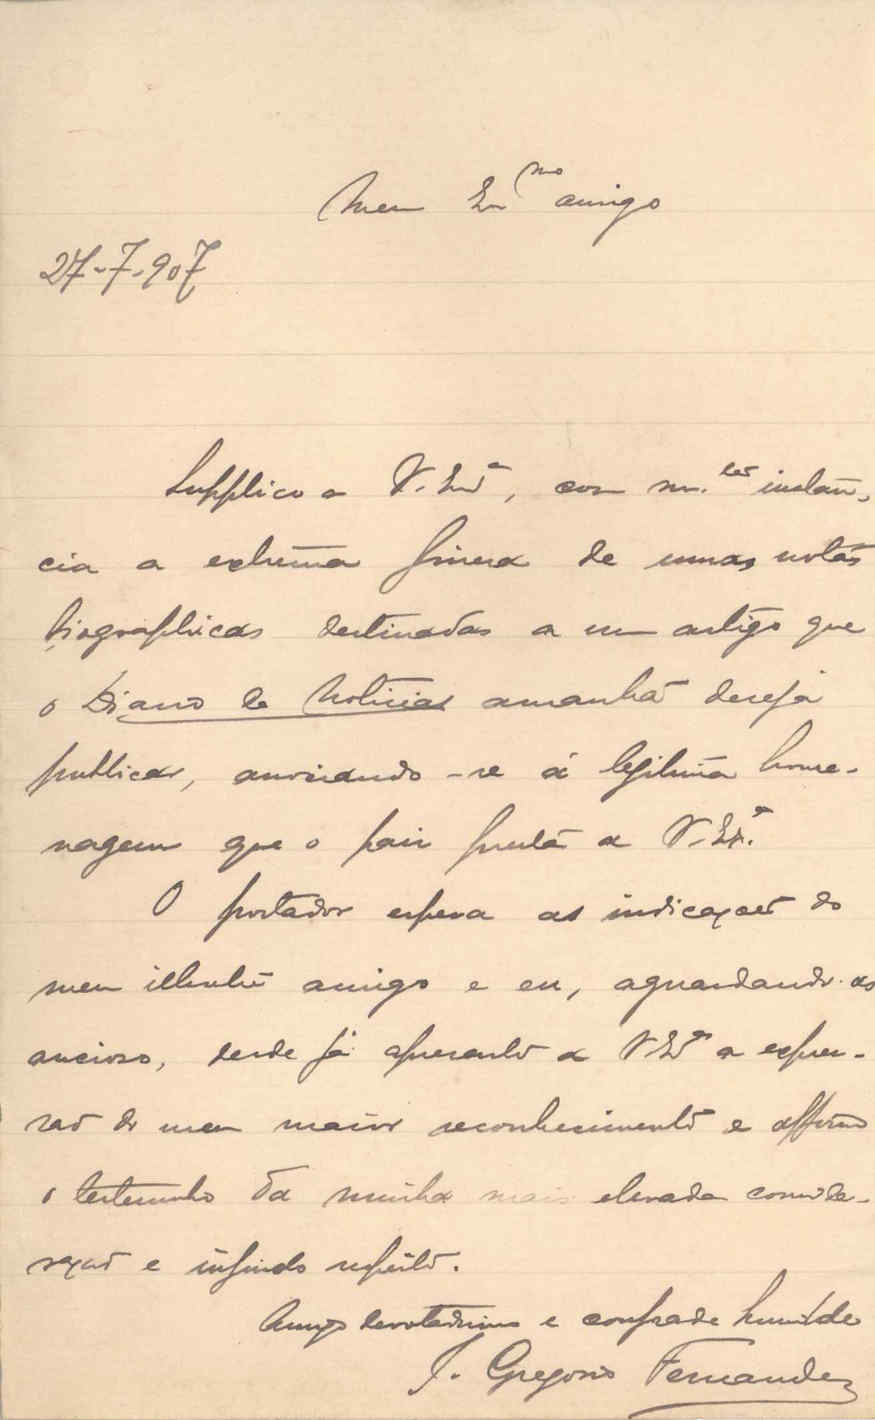 Meu Ex.mo amigo
27-7-907
Supplico a V. Ex.ª, com m.ta instan-
cia a extrema fineza de umas notas
biographicas destinadas a um artigo que
o Diario de Noticias amanhã deseja
publicar, associando-se á legitima home-
nagem que o paiz presta a V. Ex.ª
O portador espera as indicações do
meu illustre amigo e eu, aguardando-as
ancioso, desde já apresento a V. Ex.ª a expres-
são do meu maior reconhecimento e affirmo
o testemunho da minha mais elevada conside-
ração e infindo respeito.
Amigo devotadissimo e confrade humilde
J. Gregorio Fernandes